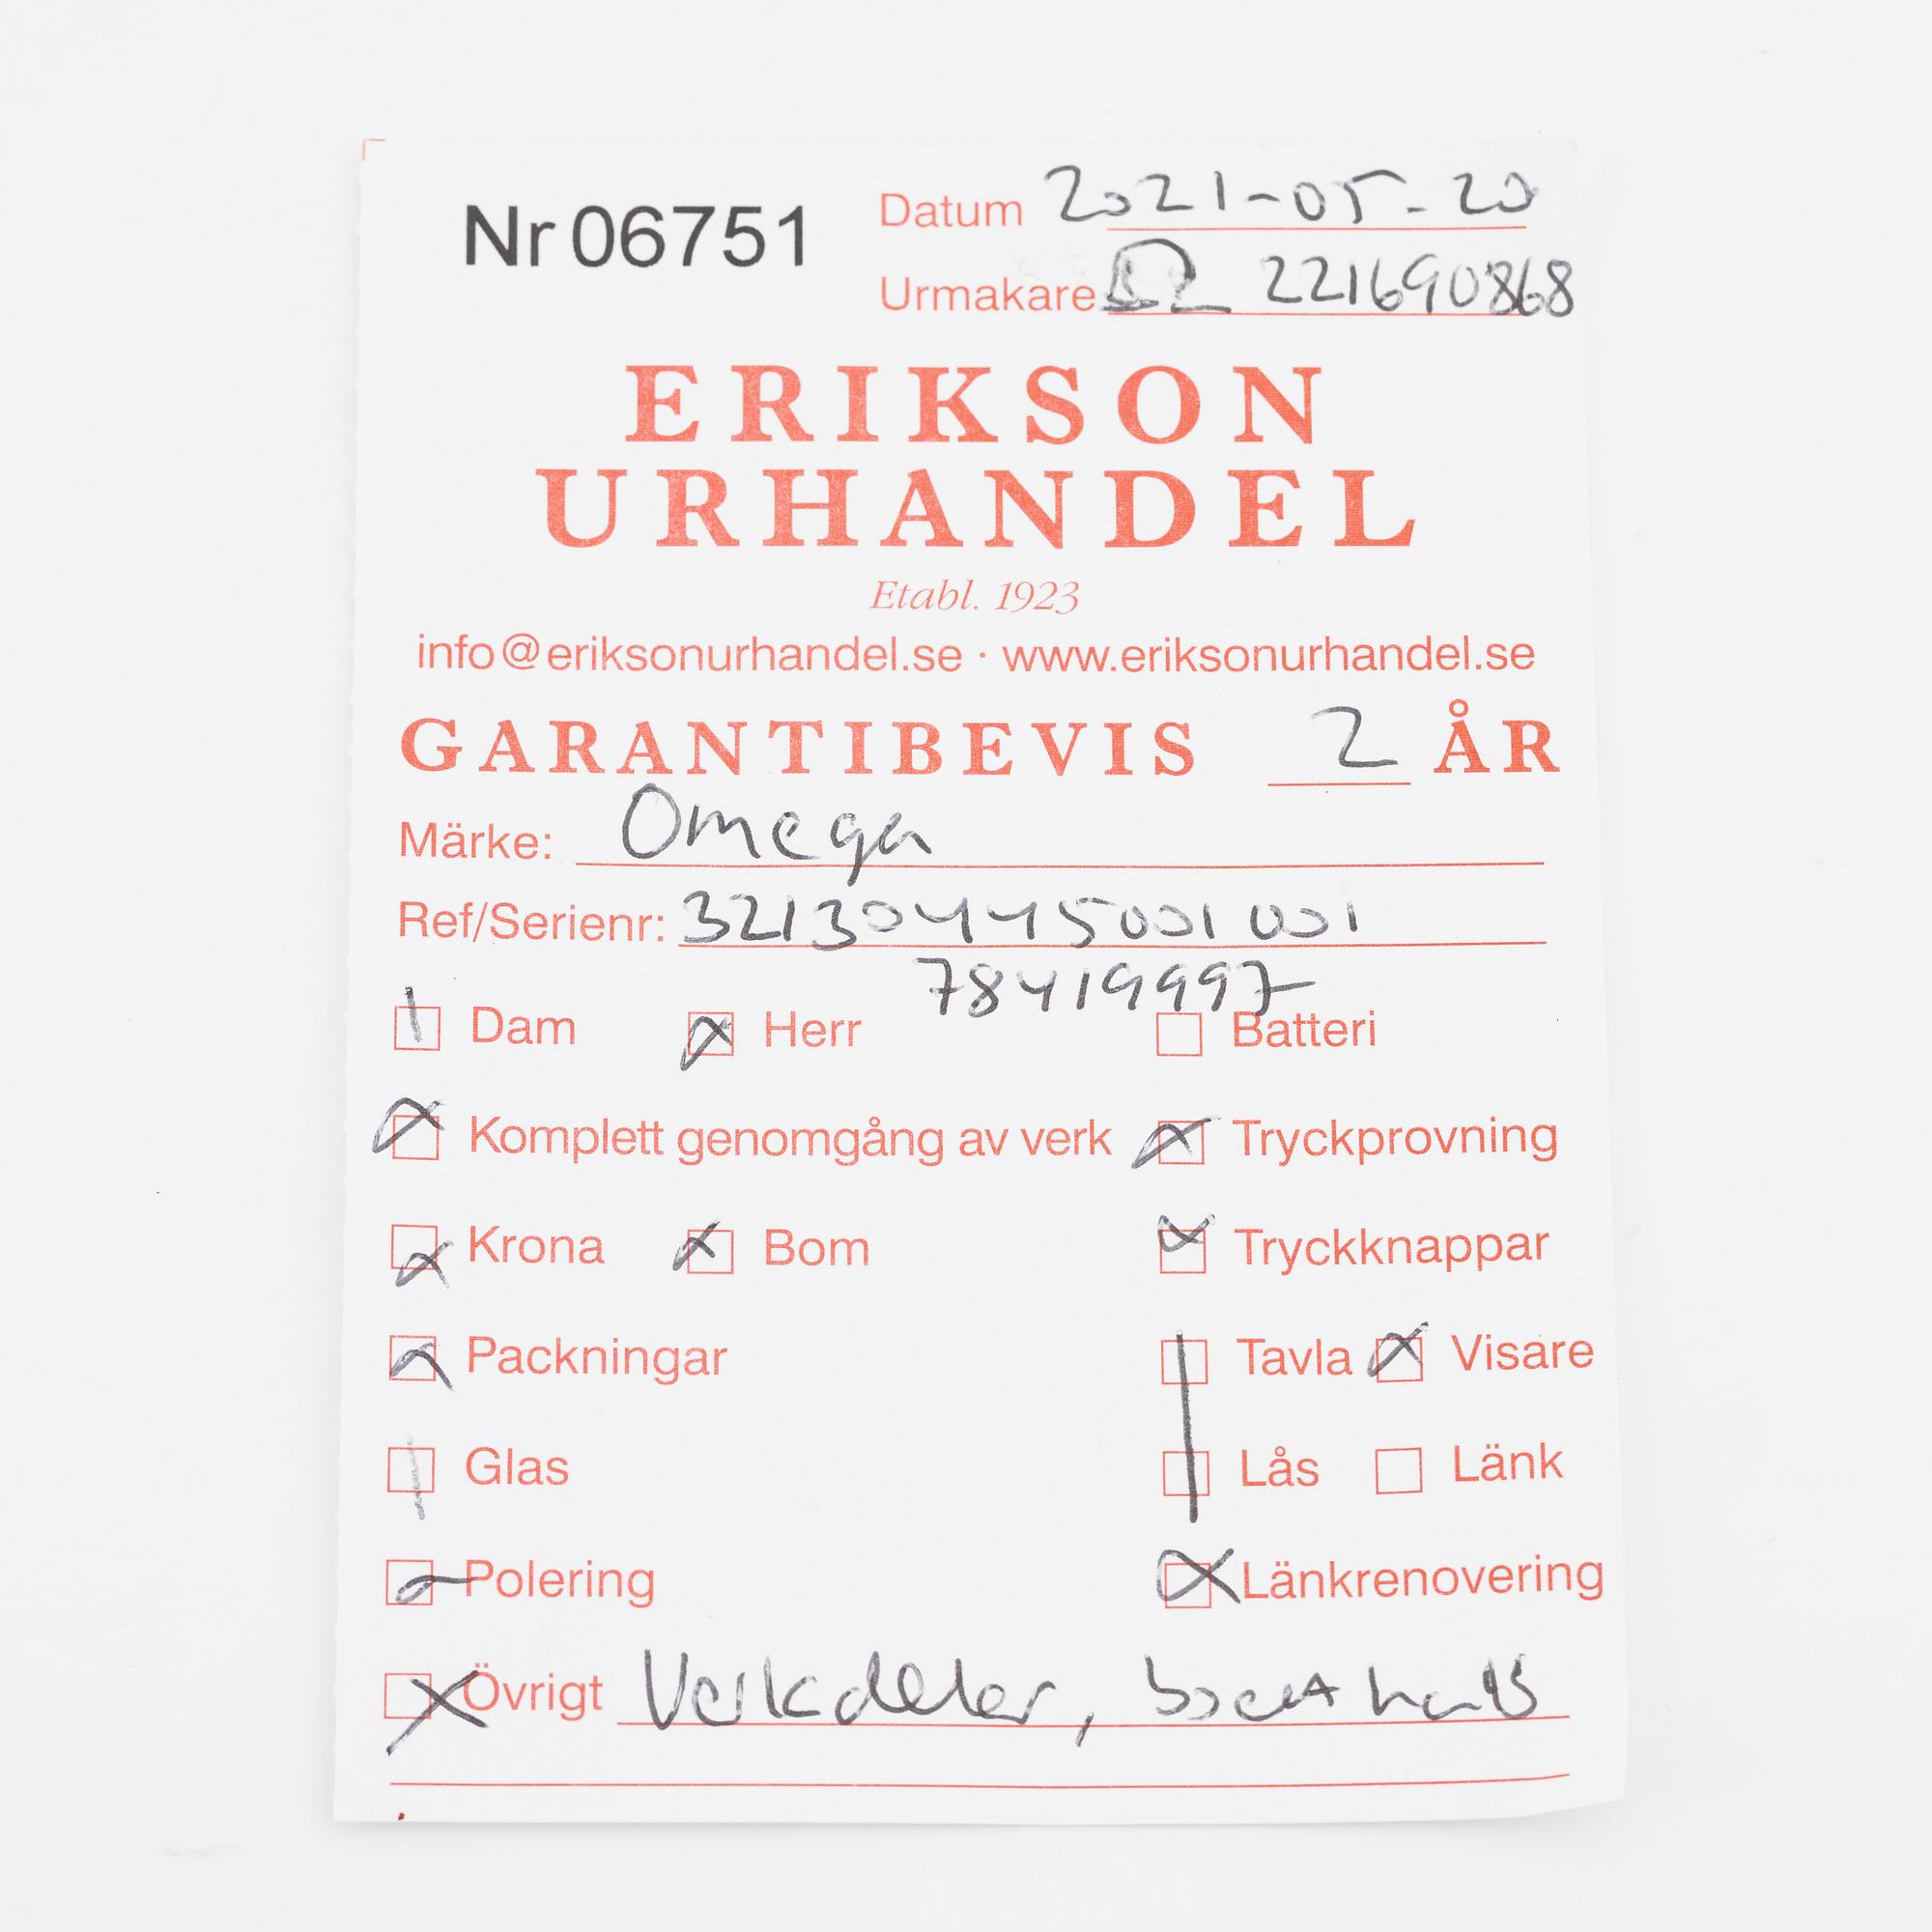 Nr 06751
Datum 2021-05-20
Urmakare Ω 221690868
ERIKSON
URHANDEL
Etabl. 1923
info@eriksonurhandel.se · www.eriksonurhandel.se
GARANTIBEVIS 2 ÅR
Märke: Omega
Ref/Serienr: 32130445001001
78419997
Dam Herr Batteri
Komplett genomgång av verk Tryckprovning
Krona Bom Tryckknappar
Packningar Tavla Visare
Glas Lås Länk
Polering Länkrenovering
Övrigt Verkdelar,